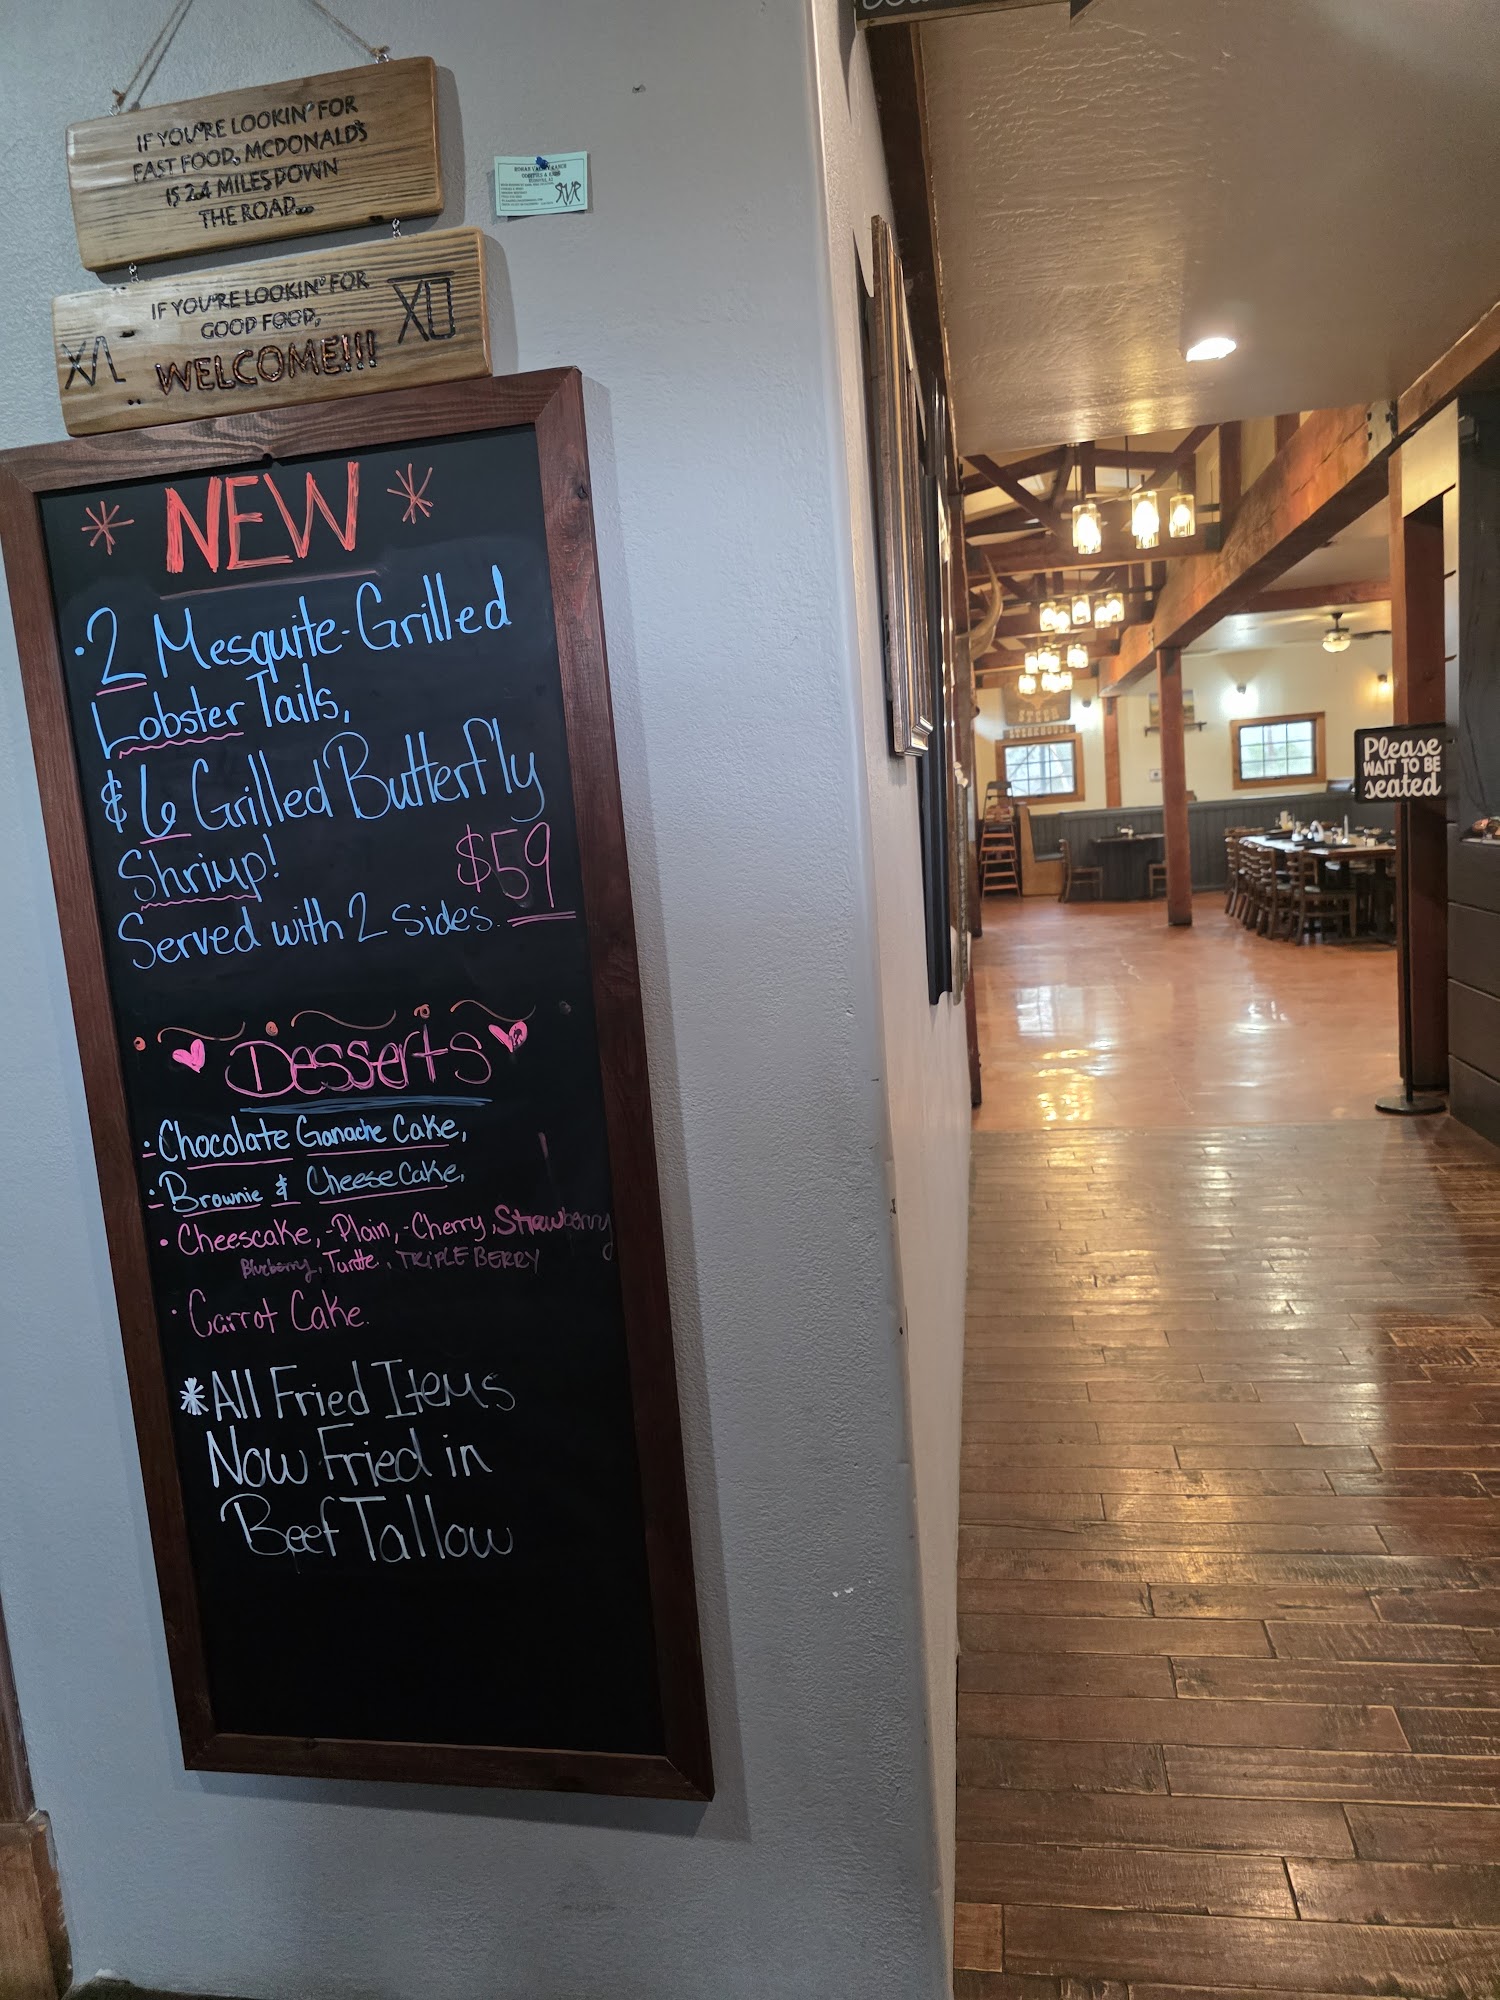 IF YOU'RE LOOKIN' FOR
FAST FOOD, MCDONALD'S
IS 2.4 MILES DOWN
THE ROAD...
IF YOU'RE LOOKIN' FOR
GOOD FOOD,
WELCOME!!!
* NEW *
·2 Mesquite-Grilled
Lobster Tails,
& 6 Grilled Butterfly
Shrimp!
$59
Served with 2 sides.
Desserts
·Chocolate Ganache Cake,
·Brownie & CheeseCake,
·Cheescake,-Plain,-Cherry,Strawberry
Blueberry, Turtle, TRIPLE BERRY
·Carrot Cake.
*All Fried Items
Now Fried in
Beef Tallow
Please
WAIT TO BE
seated